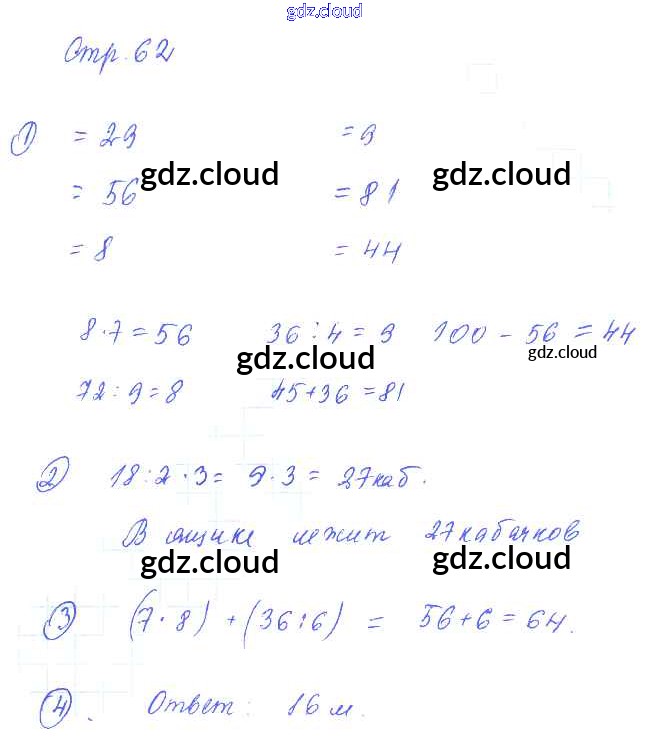 gdz.cloud
Стр. 62
① = 29 = 9
gdz.cloud gdz.cloud
= 56 = 81
= 8 = 44
8·7=56 36:4=9 100-56=44
gdz.cloud gdz.cloud
72:9=8 45+36=81
② 18:2·3= 9·3= 27каб.
В ящике лежит 27 кабачков
gdz.cloud gdz.cloud
③ (7·8)+(36:6) = 56+6=64.
④. Ответ: 16 м.